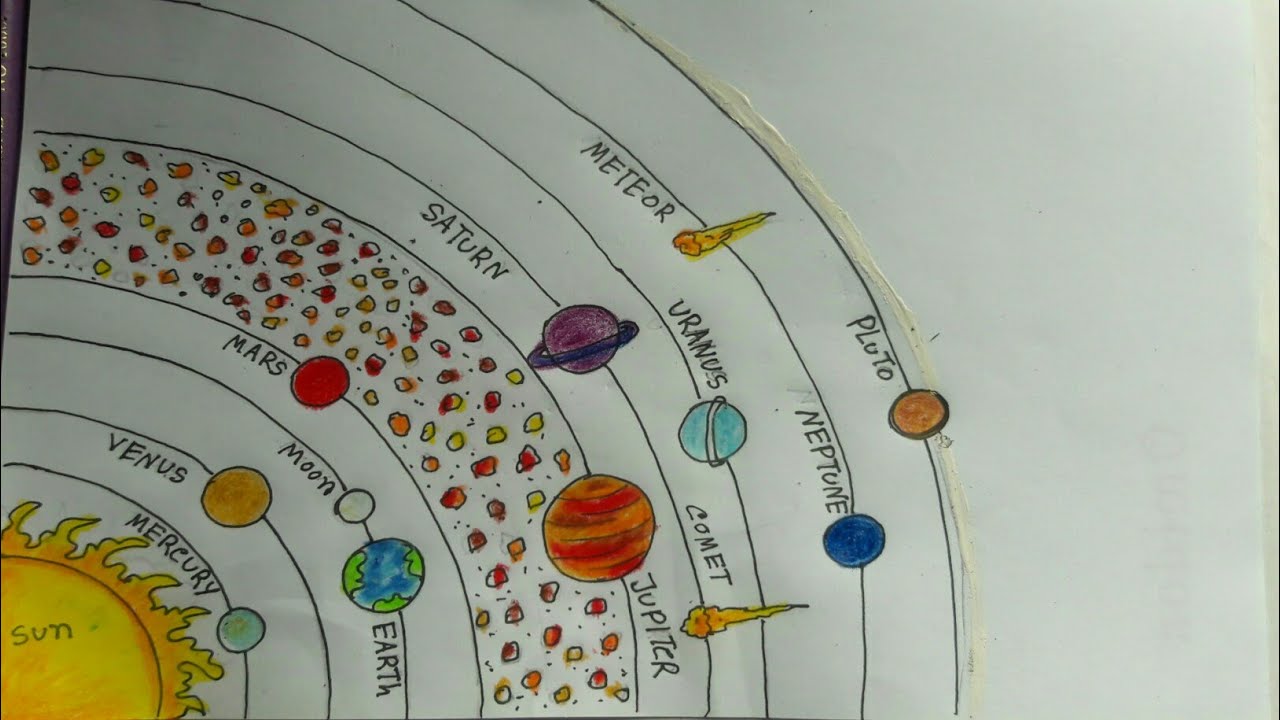 METEOR
SATURN
URANUS
PLUTO
MARS
NEPTUNE
VENUS
Moon
COMET
MERCURY
JUPITER
EARTh
Sun